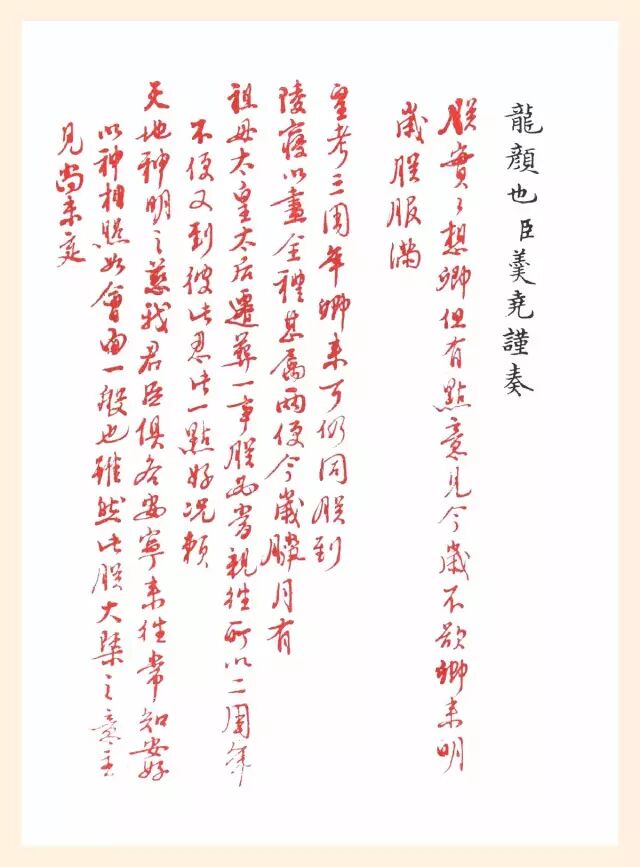 龍顏也臣羹堯謹奏
朕實々想卿但有點意見今歲不欲卿来明
歲朕服滿
皇考三周年卿来可仍同朕到
陵寢以盡全禮甚屬兩便今歲臘月有
祖母太皇太后遷葬一事朕必當親往所以二周年
不便又到彼此忍此一點好况賴
天地神明之慈我君臣俱各安寧来往常知安好
以神相照如會面一般也雖然此朕大槩之意主
見尚未定